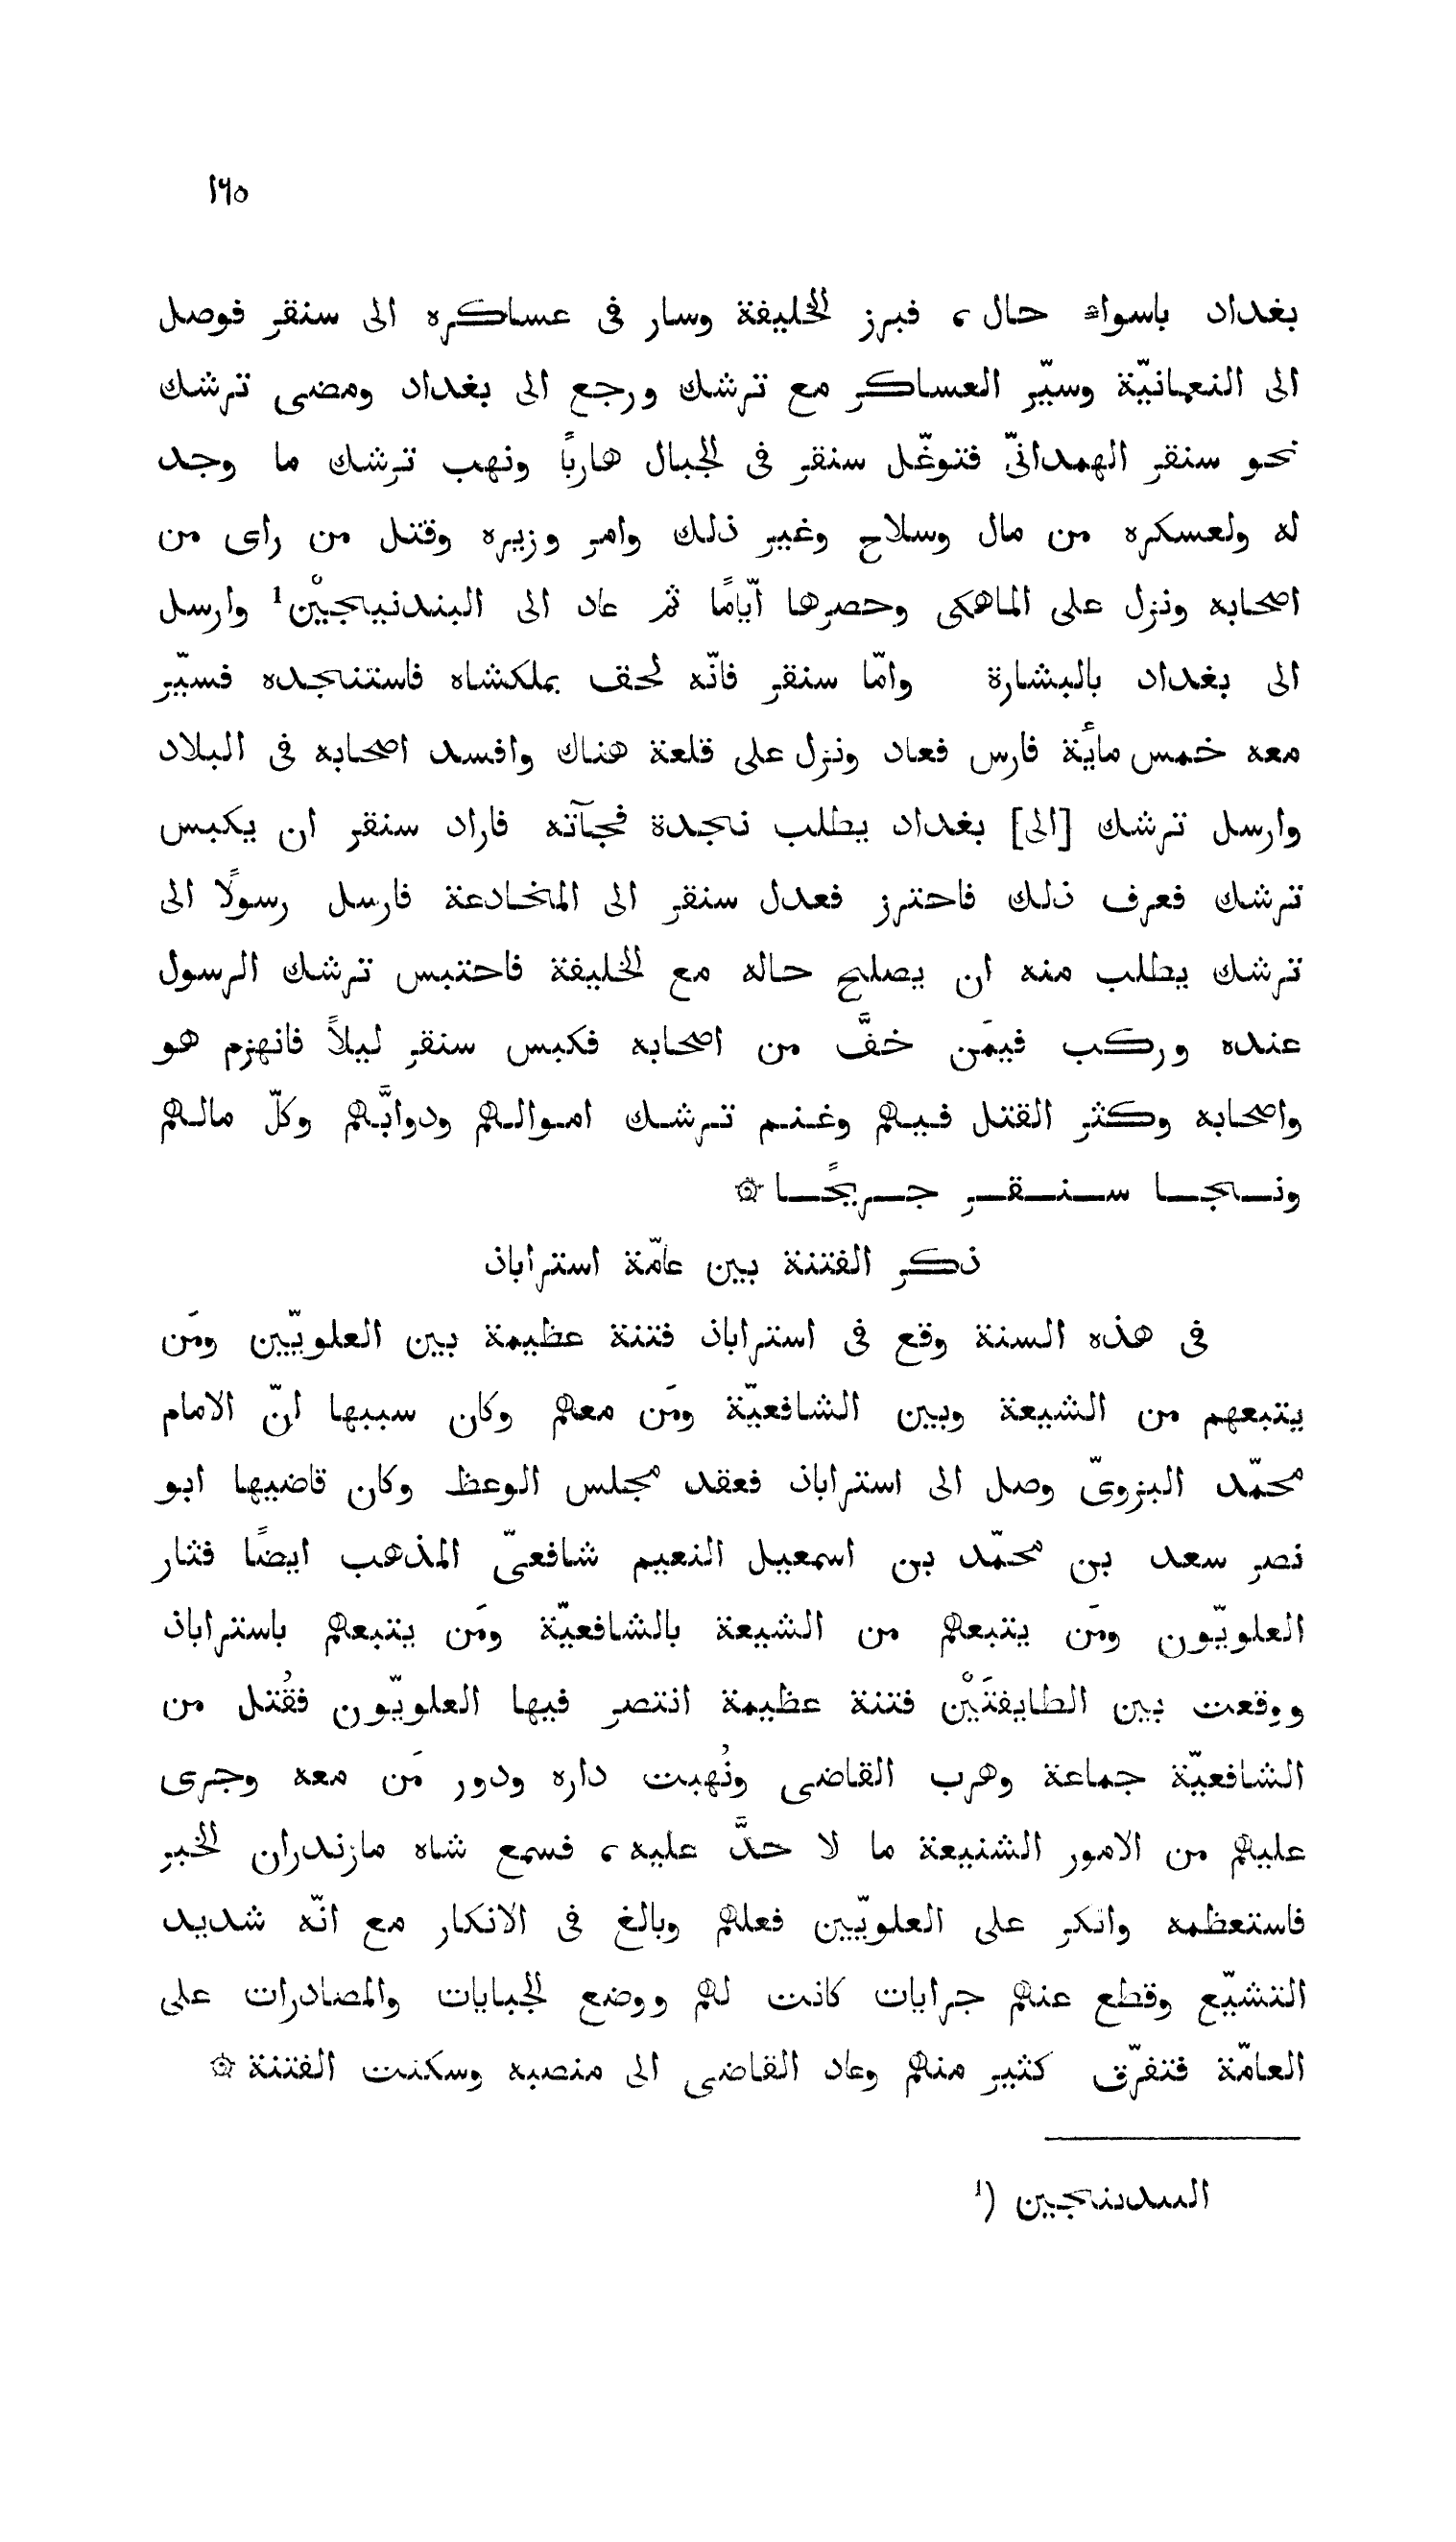 ١٦٥
بغداد باسواء حال، فبرز الخليفة وسار فى عساكره الى سنقر فوصل
الى النعمانيّة وسيّر العساكر مع ترشك ورجع الى بغداد ومضى ترشك
نحو سنقر الهمدانىّ فتوغّل سنقر فى الجبال هاربًا ونهب ترشك ما وجد
له ولعسكره من مال وسلاح وغير ذلك وامر وزيره وقتل من راى من
اصحابه ونزل على الماهكى وحصرها ايّامًا ثم عاد الى البندنيجيْن¹ وارسل
الى بغداد بالبشارة وامّا سنقر فانّه لحق بملكشاه فاستنجده فسيّر
معه خمس مائة فارس فعاد ونزل على قلعة هناك وافسد اصحابه فى البلاد
وارسل ترشك [الى] بغداد يطلب نجدة فجآته فاراد سنقر ان يكبس
ترشك فعرف ذلك فاحترز فعدل سنقر الى المخادعة فارسل رسولًا الى
ترشك يطلب منه ان يصلح حاله مع الخليفة فاحتبس ترشك الرسول
عنده وركب فيمَن خفَّ من اصحابه فكبس سنقر ليلاً فانهزم هو
واصحابه وكثر القتل فيهم وغنم ترشك اموالهم ودوابَّهم وكلّ مالهم
ونجا سنقر جريحًا ۞
ذكر الفتنة بين عامّة استراباذ
فى هذه السنة وقع فى استراباذ فتنة عظيمة بين العلويّين ومَن
يتبعهم من الشيعة وبين الشافعيّة ومَن معهم وكان سببها انّ الامام
محمّد البزوىّ وصل الى استراباذ فعقد مجلس الوعظ وكان قاضيها ابو
نصر سعد بن محمّد بن اسمعيل النعيم شافعىّ المذهب ايضًا فثار
العلويّون ومَن يتبعهم من الشيعة بالشافعيّة ومَن يتبعهم باستراباذ
ووقعت بين الطايفتَيْن فتنة عظيمة انتصر فيها العلويّون فقُتل من
الشافعيّة جماعة وهرب القاضى ونُهبت داره ودور مَن معه وجرى
عليهم من الامور الشنيعة ما لا حدَّ عليه، فسمع شاه مازندران الخبر
فاستعظمه وانكر على العلويّين فعلهم وبالغ فى الانكار مع انّه شديد
التشيّع وقطع عنهم جرايات كانت لهم ووضع الجبايات والمصادرات على
العامّة فتفرّق كثير منهم وعاد القاضى الى منصبه وسكنت الفتنة ۞